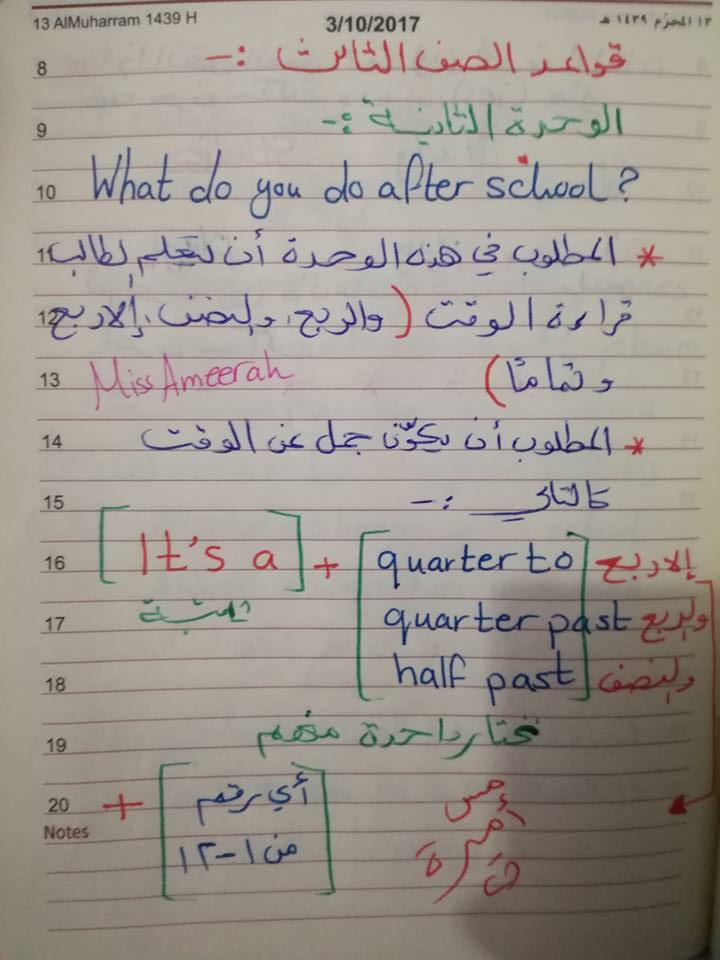 13 AlMuharram 1439 H 3/10/2017 ١٣ المحرّم ١٤٣٩ هـ
8 قواعد الصف الثالث :-
9 الوحدة الثانية :-
10 What do you do after school?
11 * المطلوب في هذه الوحدة أن يتعلم الطالب
12 قراءة الوقت (والربع، والنصف، إلا ربع
13 وتمامًا) Miss Ameerah
14 * المطلوب أن يكوّن جمل عن الوقت
15 كالتالي :-
16 [It's a] + [quarter to إلا ربع
17 ثابتة quarter past والربع
18 half past] والنصف
19 نختار واحدة منهم
20 + [أي رقم
Notes من ١-١٢]
مس
أميرة